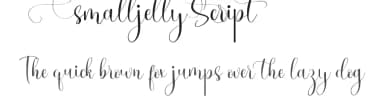 smalljelly Script
The quick brown fox jumps over the lazy dog